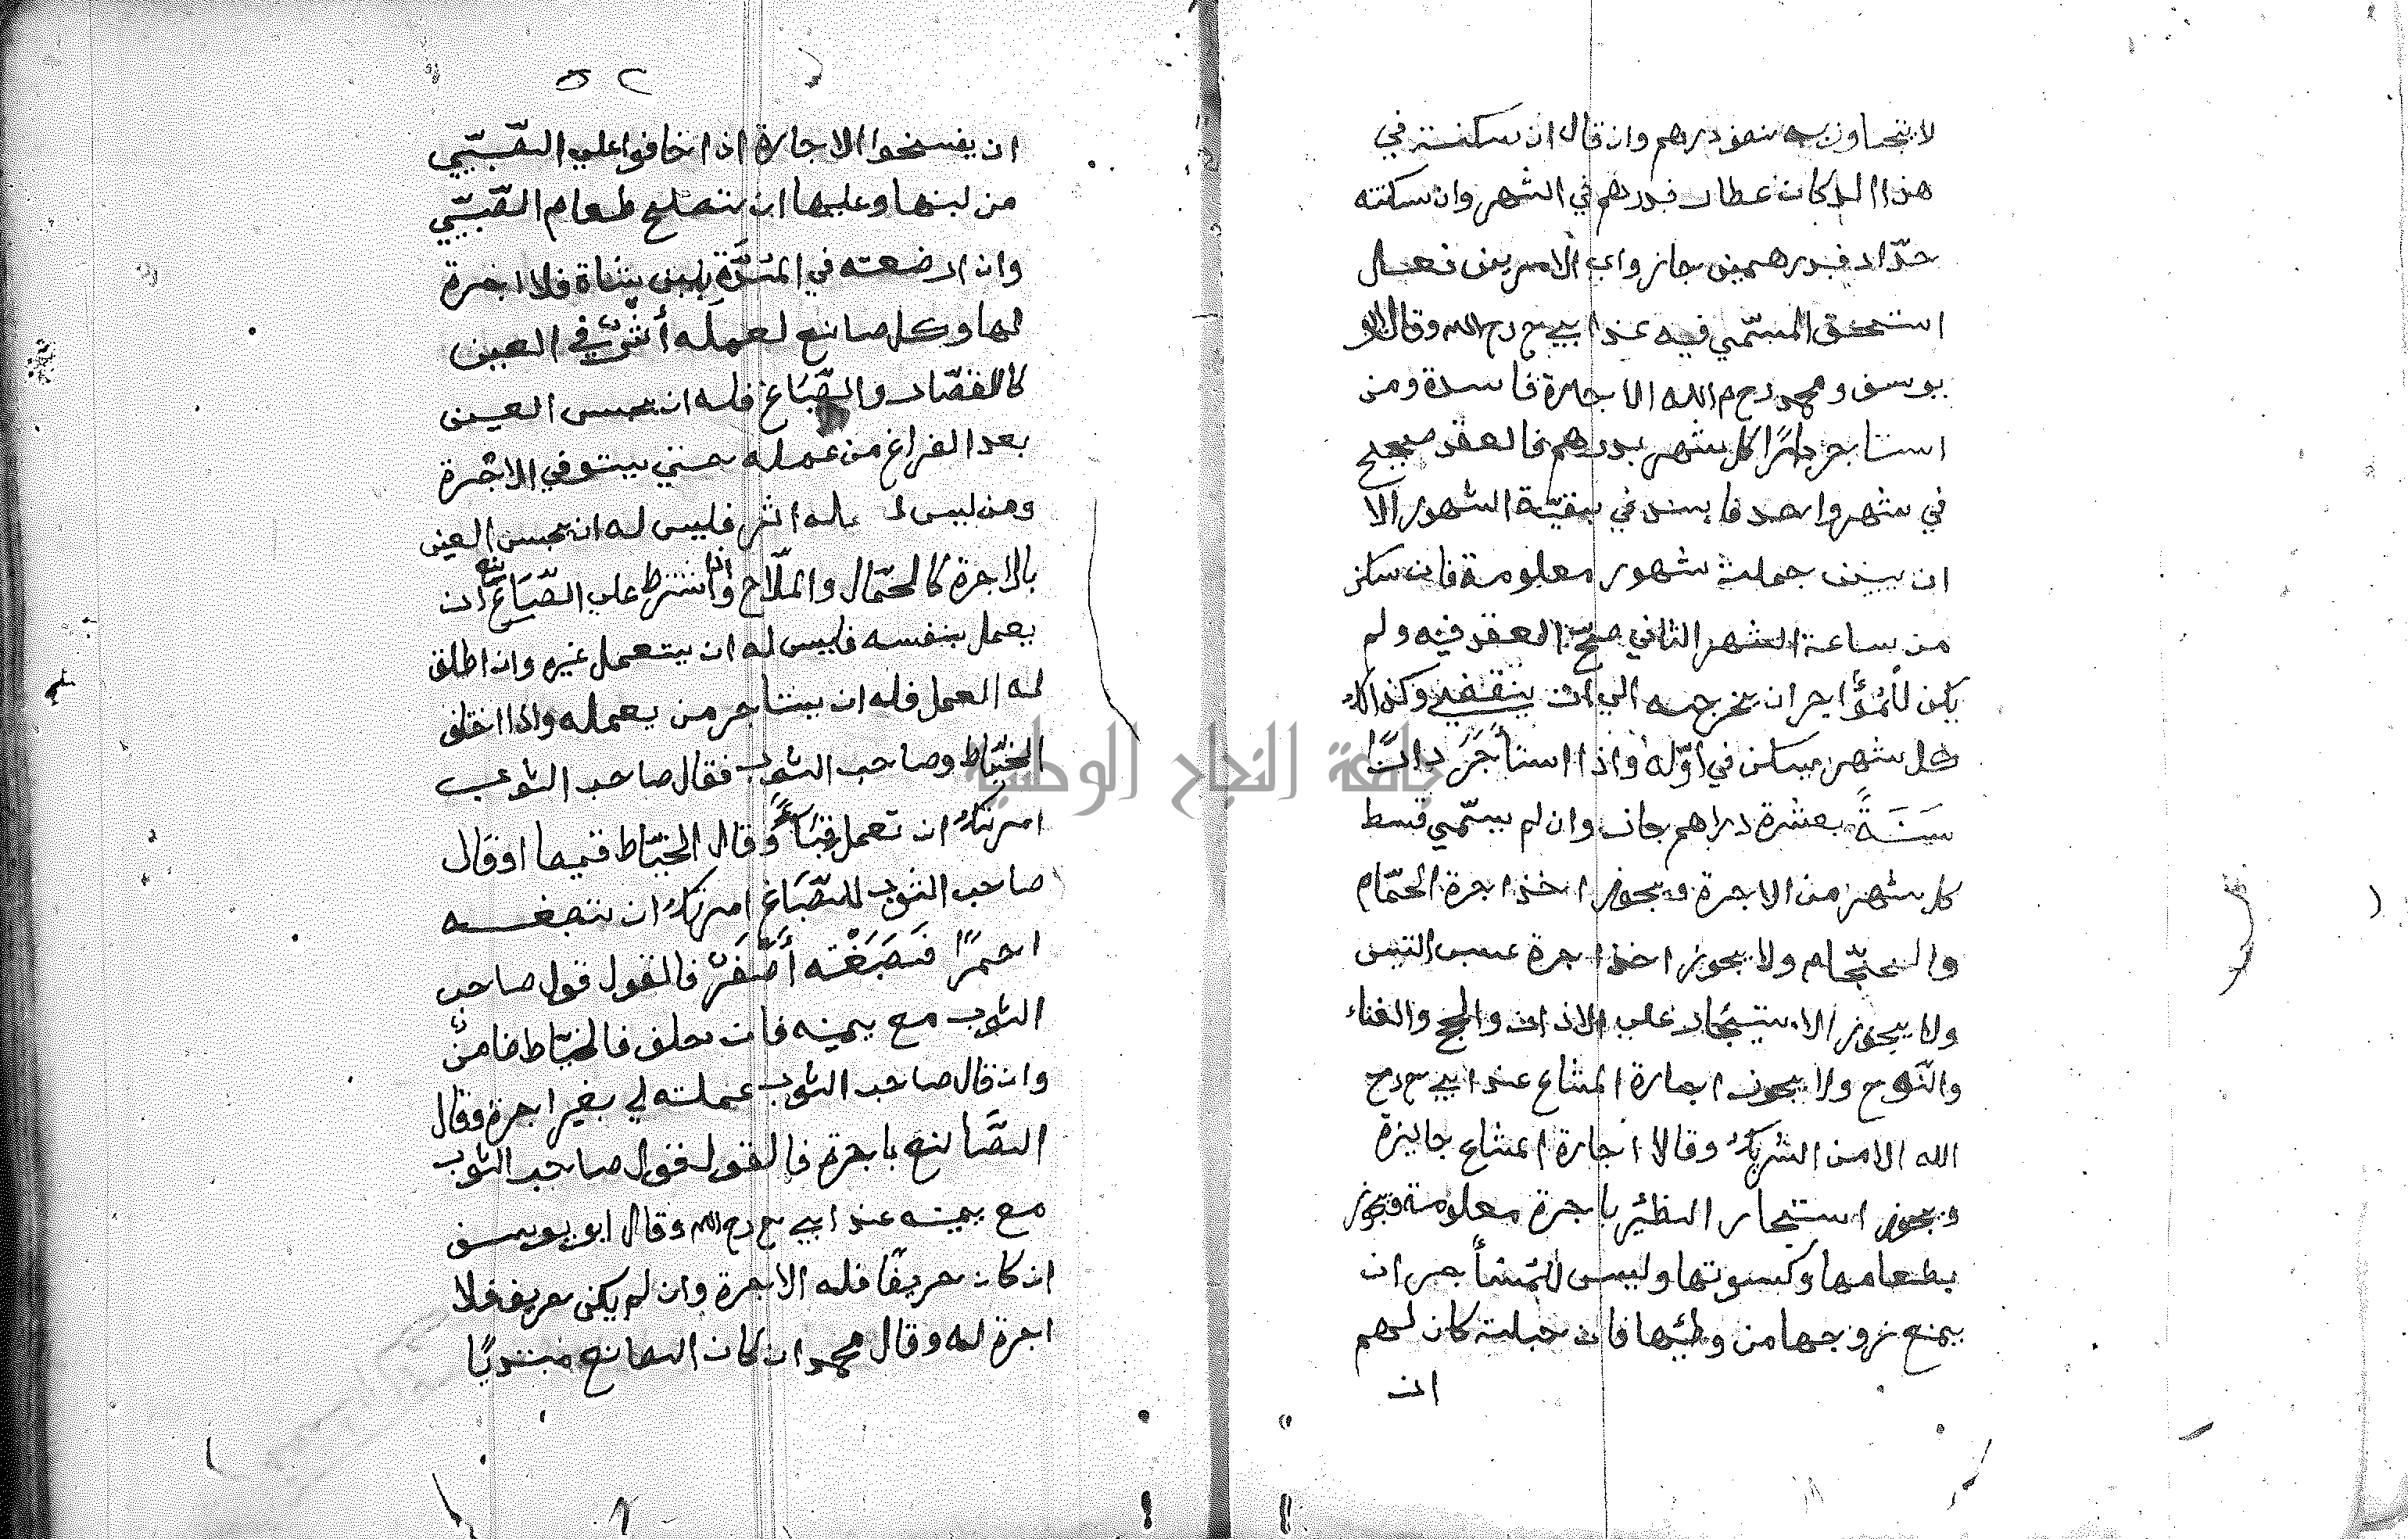 لا يتجاوز به نصف درهم وان قال ان سكنته في
هذا الدكان عطار فبدرهم في الشهر وان سكنته
حدّاد فبدرهمين جاز واي الامرين فعل
استحق المسمّي فيه عند ابي ح رح الله وقال ابو
يوسف ومحمد رح م الله الاجارة فاسدة ومن
استاجر دارًا كل شهر بدرهم فالعقد صحيح
في شهر واحد فاسد في بقيّة الشهور الا
ان يبين جملة شهور معلومة فان سكن
من ساعة الشهر الثاني صح العقد فيه ولم
يكن للمؤاجر ان يخرجه الي ان ينقضي وكذالك
كل شهر سكن في اوّله واذا استأجَرَ دارًا
سَنَةً بعشرة دراهم جاز وان لم يسمّي قسط
كل شهر من الاجرة ويجوز اخذ اجرة الحمّام
والحجّام ولا يجوز اخذ اجرة عسب التيس
ولا يجوز الاستيجار علي الاذان والحج والغناء
والنّوح ولا يجوز اجارة المشاع عند ابي ح رح
الله الا من الشريك وقالا اجارة المشاع جايزة
ويجوز استيجار الظئر باجرة معلومة ويجوز
بطعامها وكسوتها وليس للمستأجر ان
يمنع زوجها من وطئها فان حبلت كان لهم
ان
٥٢
ان يفسخوا الاجارة اذا خافوا علي الصّبيّ
من لبنها وعليها ان تصلح طعام الصّبيّ
وان ارضعته في المُدّة بلبن شاة فلا اجرة
لها وكل صانع لعمله أثرٌ في العين
كالقصّار والصّبَاغ فله ان يحبس العين
بعد الفراغ من عمله حتي يستوفي الاجْرة
ومن ليس لعمله اثر فليس له ان يحبس العين
بالاجرة كالحمّال والملّاح واذا اشترط علي الصّبَاغ ان
يعمل بنفسه فليس له ان يستعمل غيره وان اطلق
له العمل فله ان يستأجر من يعمله واذا اختلف
الخيّاط وصاحب الثوب فقال صاحب الثوب
امرتك ان تعمل قبَاءً وقال الخيّاط قميصا او قال
صاحب الثوب للصّبَاغ امرتك ان تصبغه
احمرًا فَصَبَغْتَه أَصْفَرْ فالقول قول صاحب
الثوب مع يمينه فان حلف فالخيّاط ضامنٌ
وان قال صاحب الثوب عملته لي بغير اجرة وقال
الصّانع باجرة فالقول قول صاحب الثوب
مع يمينه عند ابي ح رح الله وقال ابو يوسف
ان كان حريفًا فله الاجرة وان لم يكن حريف فلا
اجرة له وقال محمد ان كان الصانع مبتديًا
جامعة النجاح الوطنية